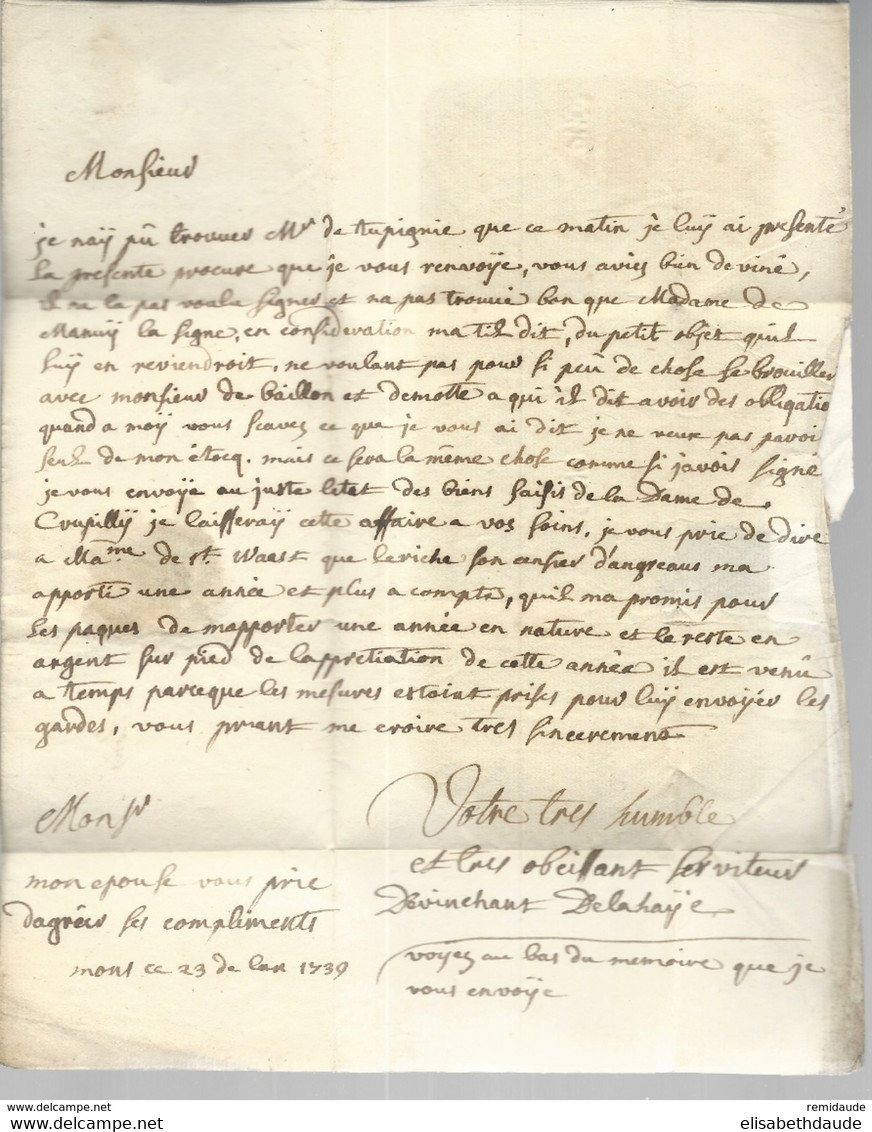 Monsieur
je naÿ pû trouver Mr de Aupignie que ce matin je luÿ ai presenté
la presente procure que je vous renvoÿe, vous aviez bien deviné,
il ne la pas voulu signer et na pas trouvé bon que Madame de
la signe, en consideration ma til dit, du petit objet quil
luÿ en reviendroit, ne voulant pas pour si peû de chose se brouiller
avec monsieur de Baillon et demotte a qui il dit avoir des obligatio
quand a moÿ vous scavez ce que je vous ai dit je ne veux pas pavoi
seul de mon etocq. mais ce sera la même chose comme si javois signé
je vous envoÿe au juste letat des biens saisis de la Dame de
Crupillÿ je laisseraÿ cette affaire a vos soins, je vous prie de dire
a Mame de St. Waast que leriche son censier d'angreaus ma
apporté une année et plus a compte, quil ma promis pour
les paques de mapporter une année en nature et le reste en
argent sur pied de lappretiation de cette année il est venû
a temps parceque les mesures estoint prises pour luÿ envoyer les
gardes, vous priant me croire tres sincerement
Monsr
Votre tres humble
et tres obeissant serviteur
Devinchant Delahaÿe
mon epouse vous prie
dagréer ses compliments
mons ce 23 de lan 1739
voyez au bas du memoire que je
vous envoÿe
delcampe.net
remidaude
elisabethdaude